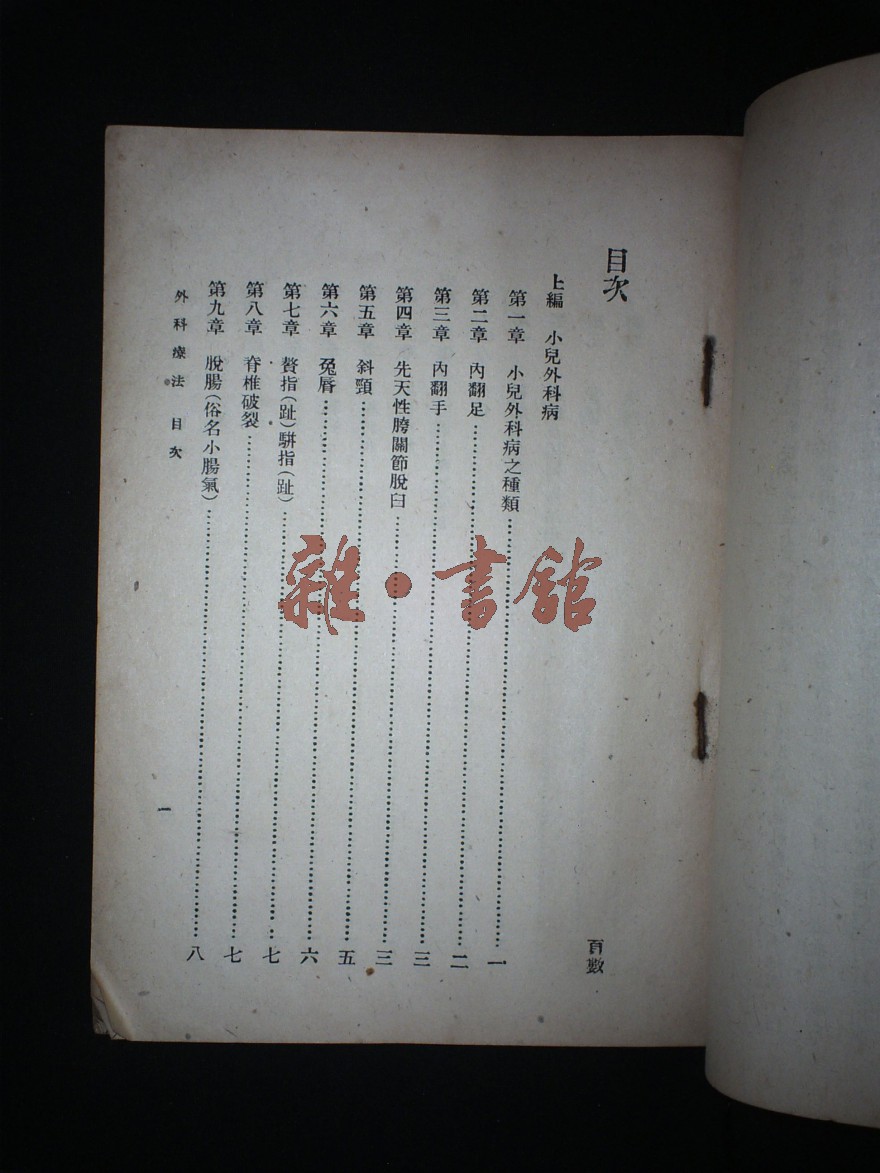 目次
頁數
上編　小兒外科病
第一章　小兒外科病之種類……一
第二章　內翻足……二
第三章　內翻手……三
第四章　先天性胯關節脫臼……三
第五章　斜頸……五
第六章　兔唇……六
第七章　贅指(趾)駢指(趾)……七
第八章　脊椎破裂……七
第九章　脫腸(俗名小腸氣)……八
外科療法　目次
一
雜·書館